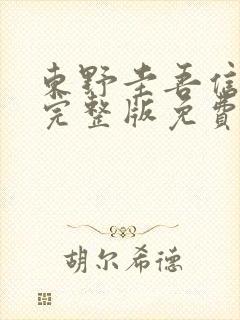 東野圭吾信
完整版免費
胡尔希德